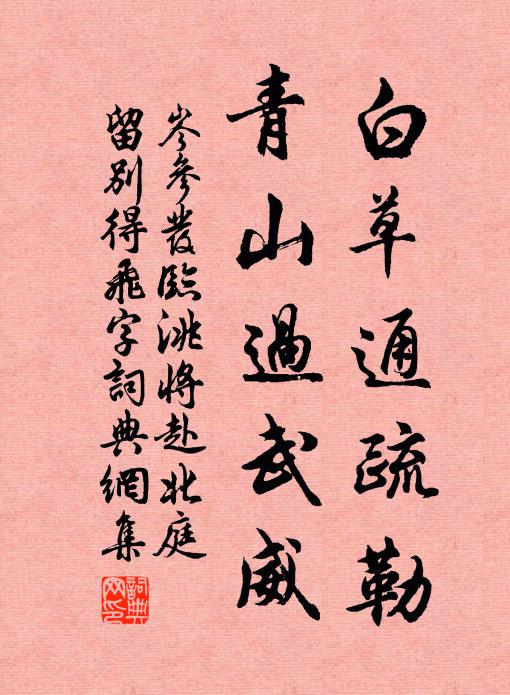 白草通疏勒
青山過武威
岑參發臨洮將赴北庭
留別得飛字詞典網集
詞典
网印